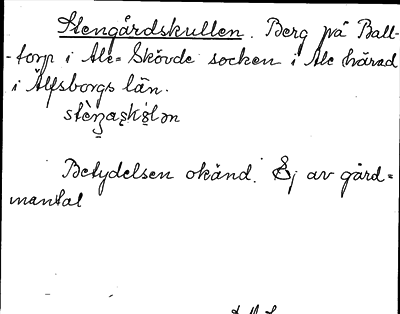 Stengårdskullen. Berg på Ball-
-torp i Ale-Skövde socken i Ale härad
i Älfsborgs län.
Betydelsen okänd. Ej av gård=
mantal